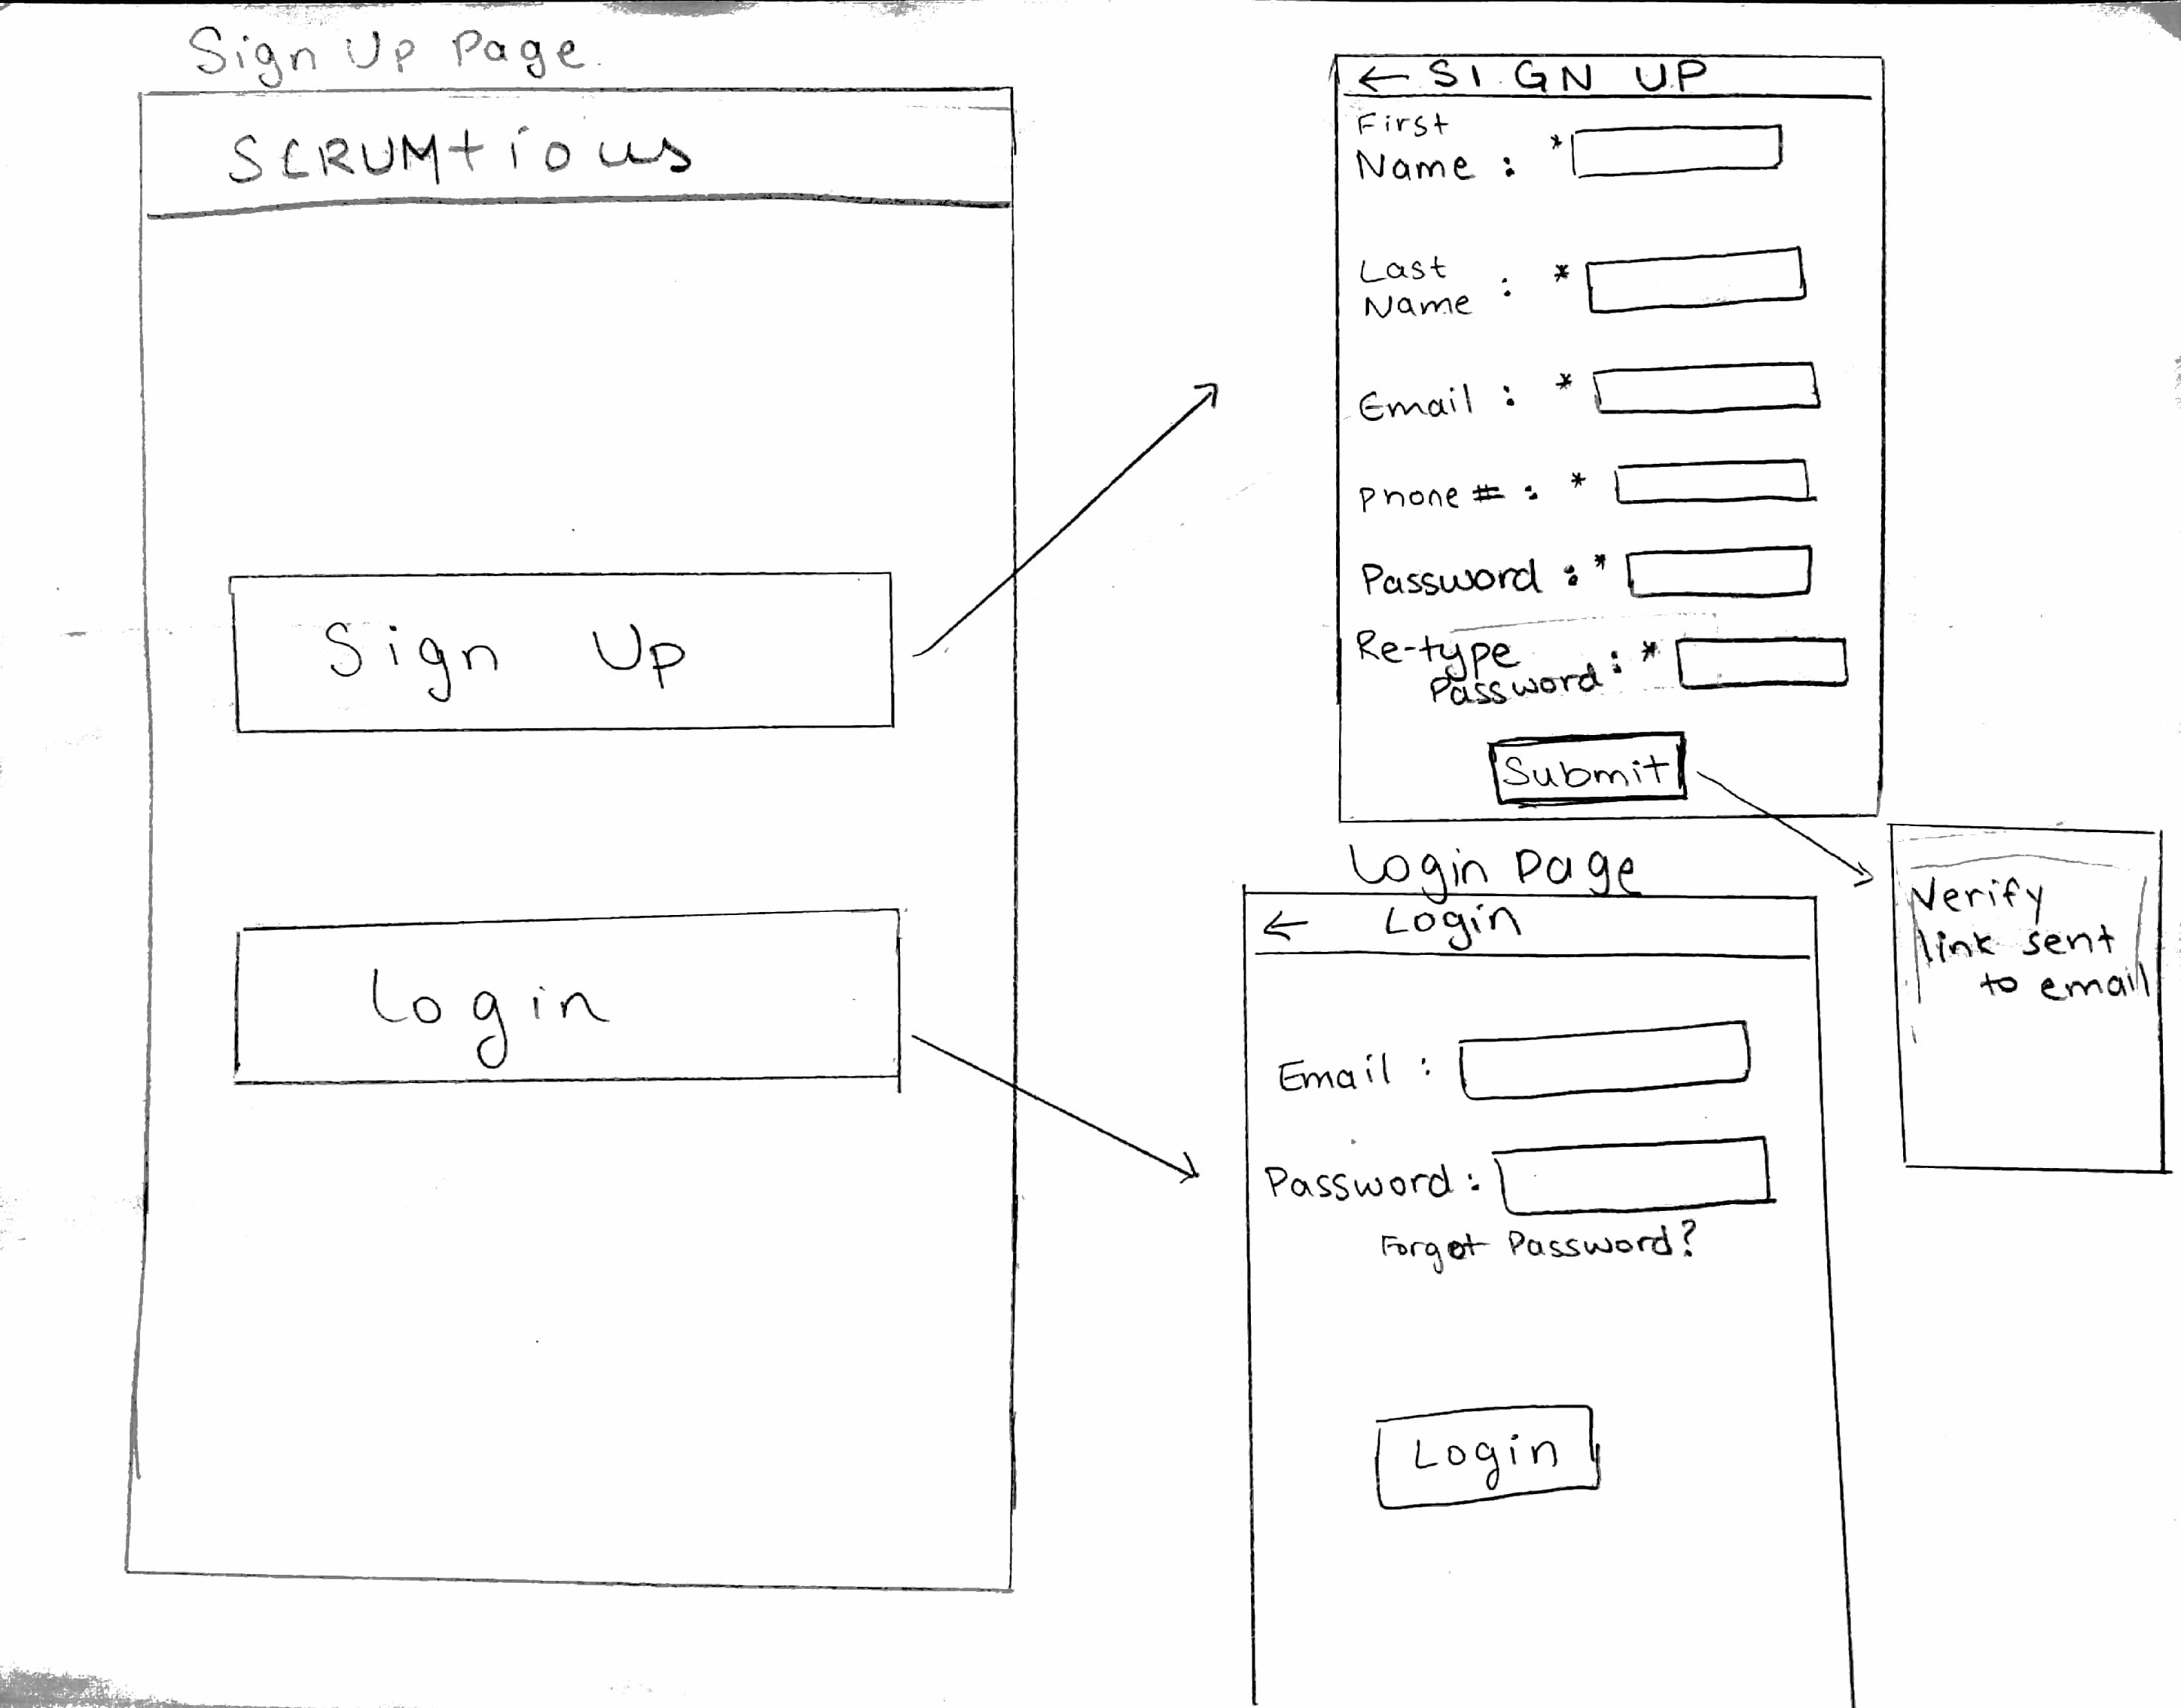 Sign Up Page.
SCRUMtious
Sign Up
Login
← SIGN UP
First
Name : *
Last
Name : *
Email : *
Phone # : *
Password : *
Re-type
Password : *
Submit
Verify
link sent
to email
Login Page
← Login
Email :
Password :
Forgot Password?
Login